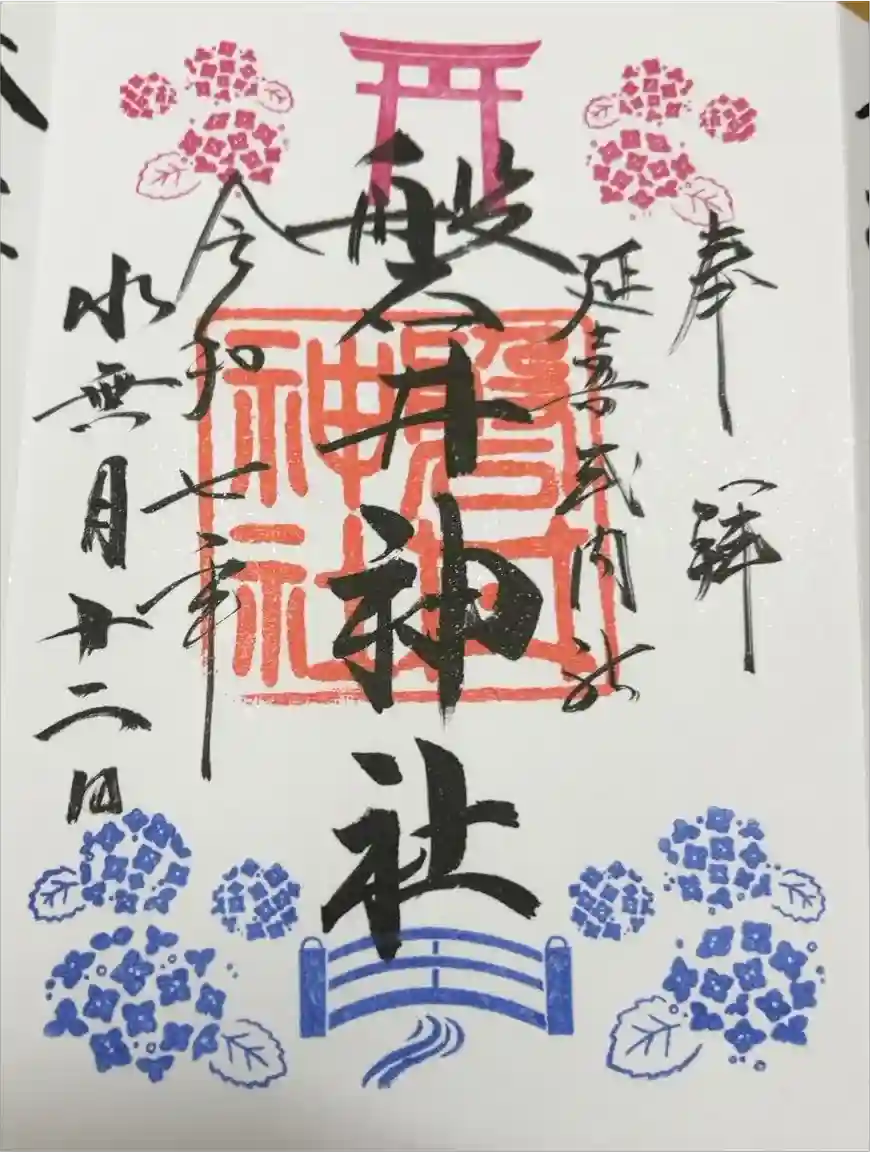 奉拝
延喜式内社
磐井神社
磐井
神社
令和七年
水無月十二日